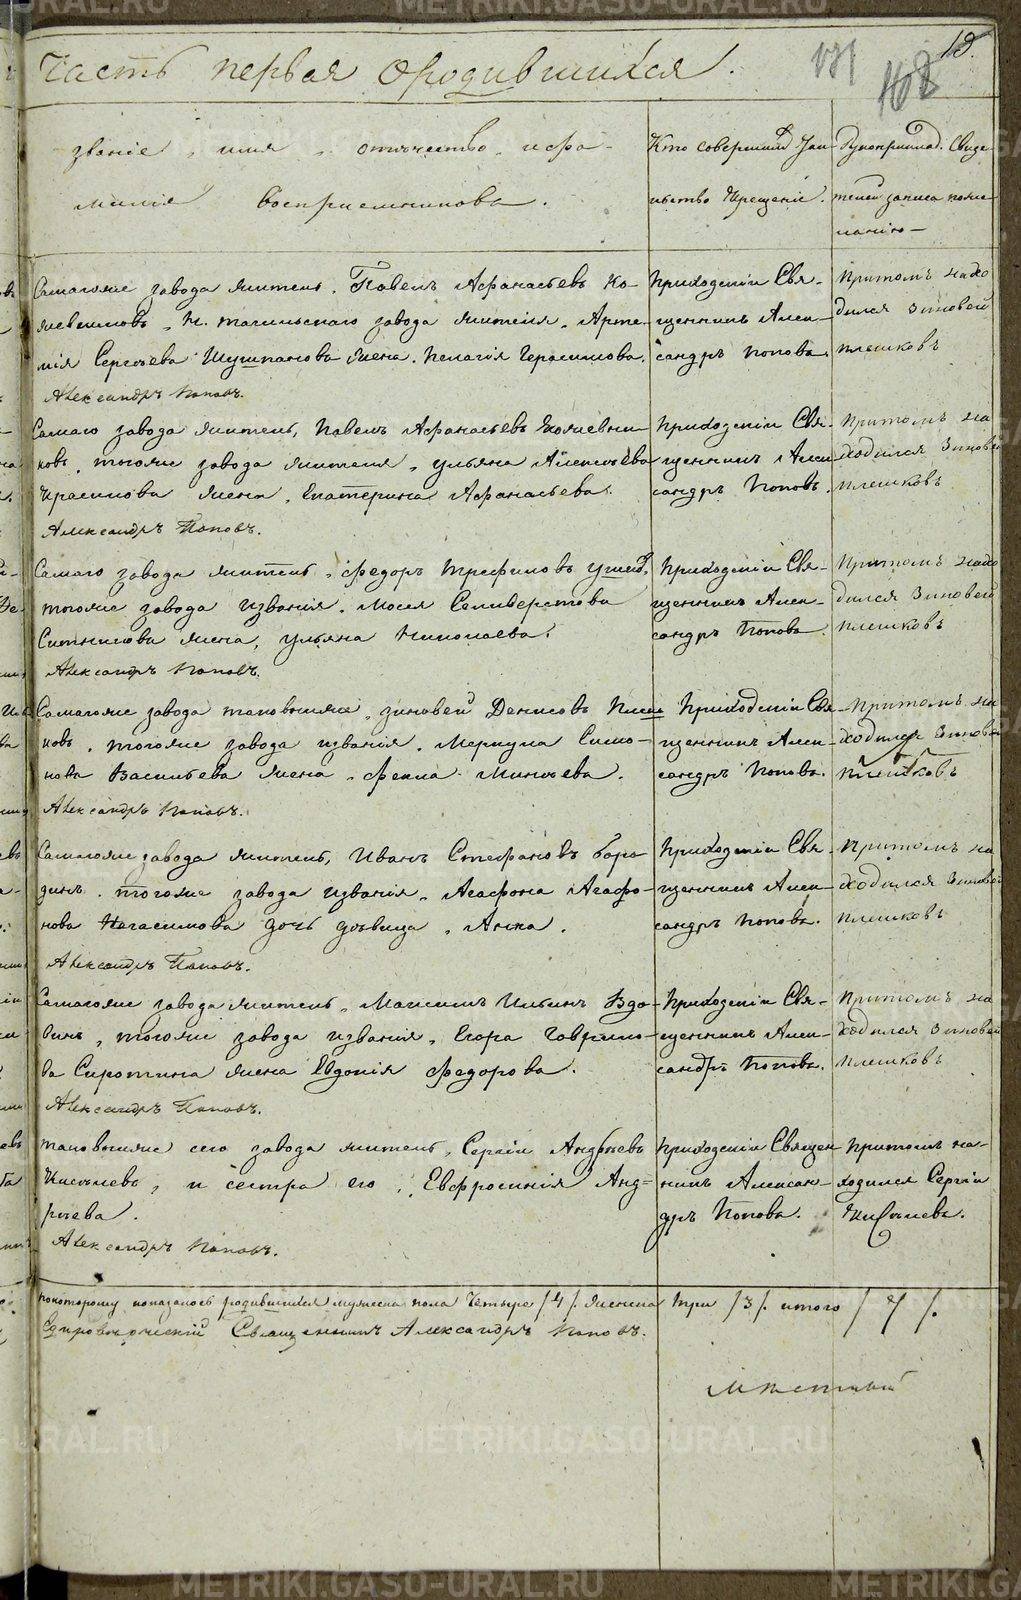 METRIKI.GASO-URAL.RU
Часть первая Ородившихся.
18.
званіе, имя, отчество, ифа-
миліе воспріемниковъ.
Кто совершалъ Таи-
нство Крещенія.
Рукоприклад. Свиде-
телей записа пожела-
нію
Самагоже завода житель, Павелъ Афанасьевъ Ко-
жевниковъ, Н. тагильскаго завода жителя, Арте-
мія Сергеева Шушпанова жена, Пелагія Герасимова.
Александръ Поповъ.
Приходскіи Свя-
щенникъ Алек-
сандръ Поповъ.
Притомъ нахо
дился Зиновей
Плешковъ
Самаго завода житель, Павелъ Афанасьевъ Кожевни-
ковъ, тогоже завода жителя, Ульяна Алексеева
жена, Екатерина Афанасьева.
Александръ Поповъ.
Приходскіи Свя-
щенникъ Алек-
сандръ Поповъ.
Притомъ на
ходился Зиновей
Плешковъ
Самаго завода житель, Федоръ Трефиловъ
тогоже завода извания, Мосея Селиверстова
Ситникова жена, Ульяна Николаева.
Александръ Поповъ.
Приходскіи Свя-
щенникъ Алек-
сандръ Поповъ.
Притомъ нахо
дился Зиновей
Плешковъ
Самагоже завода таковыяже, Зиновей Денисовъ Плеш
ковъ, тогоже завода извания, Меркула Симо-
нова Васильева жена, Фекла Минѣева.
Александръ Поповъ.
Приходскіи Свя-
щенникъ Алек-
сандръ Поповъ.
Притомъ на
ходился Зиновей
Плешковъ
Самагоже завода житель, Иванъ Стефановъ Боро
динъ, тогоже завода извания, Агафона Агафо-
нова дочь дѣвица, Анна.
Александръ Поповъ.
Приходскіи Свя-
щенникъ Алек-
сандръ Поповъ.
Притомъ на
ходился Зиновей
Плешковъ
Самагоже завода житель, Максимъ Ильинъ Вдо-
винъ, тогоже завода извания, Егора Гаврило-
ва Сиротина жена Евдокія Федорова.
Александръ Поповъ.
Приходскіи Свя-
щенникъ Алек-
сандръ Поповъ.
Притомъ на
ходился Зиновей
Плешковъ
таковыяже сего завода житель, Сергіи Андрѣевъ
Киселевъ, и сестра его, Евфросинія Анд-
рѣева.
Александръ Поповъ.
Приходскіи Священ
никъ Алексан-
дръ Поповъ.
Притомъ на-
ходился Сергіи
Киселевъ.
покоторому показалось родившихся мужеска пола Четыре /4/. женска три /3/. итого /7/.
Единовѣрческій Священникъ Александръ Поповъ.
METRIKI.GASO-URAL.RU
METRIKI.GASO-URAL.RU